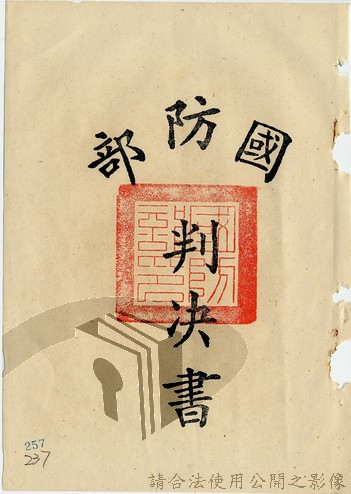 國防部
判決書
國防部印
257
237
請合法使用公開之影像